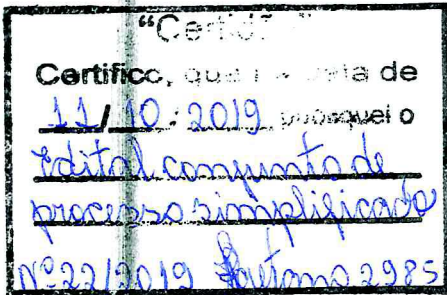 "Certidão"
Certifico, que na data de
11/10/2019 publiquei o
Edital conjunto de
processo simplificado
Nº 22/2019 2985